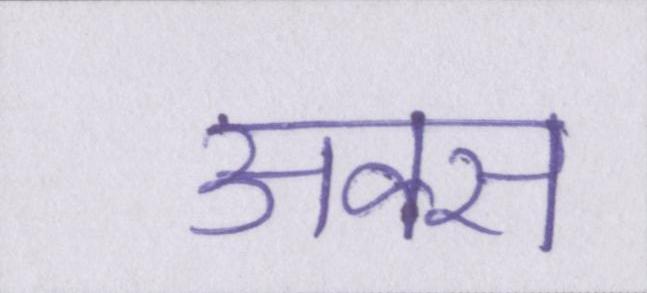 अक्स